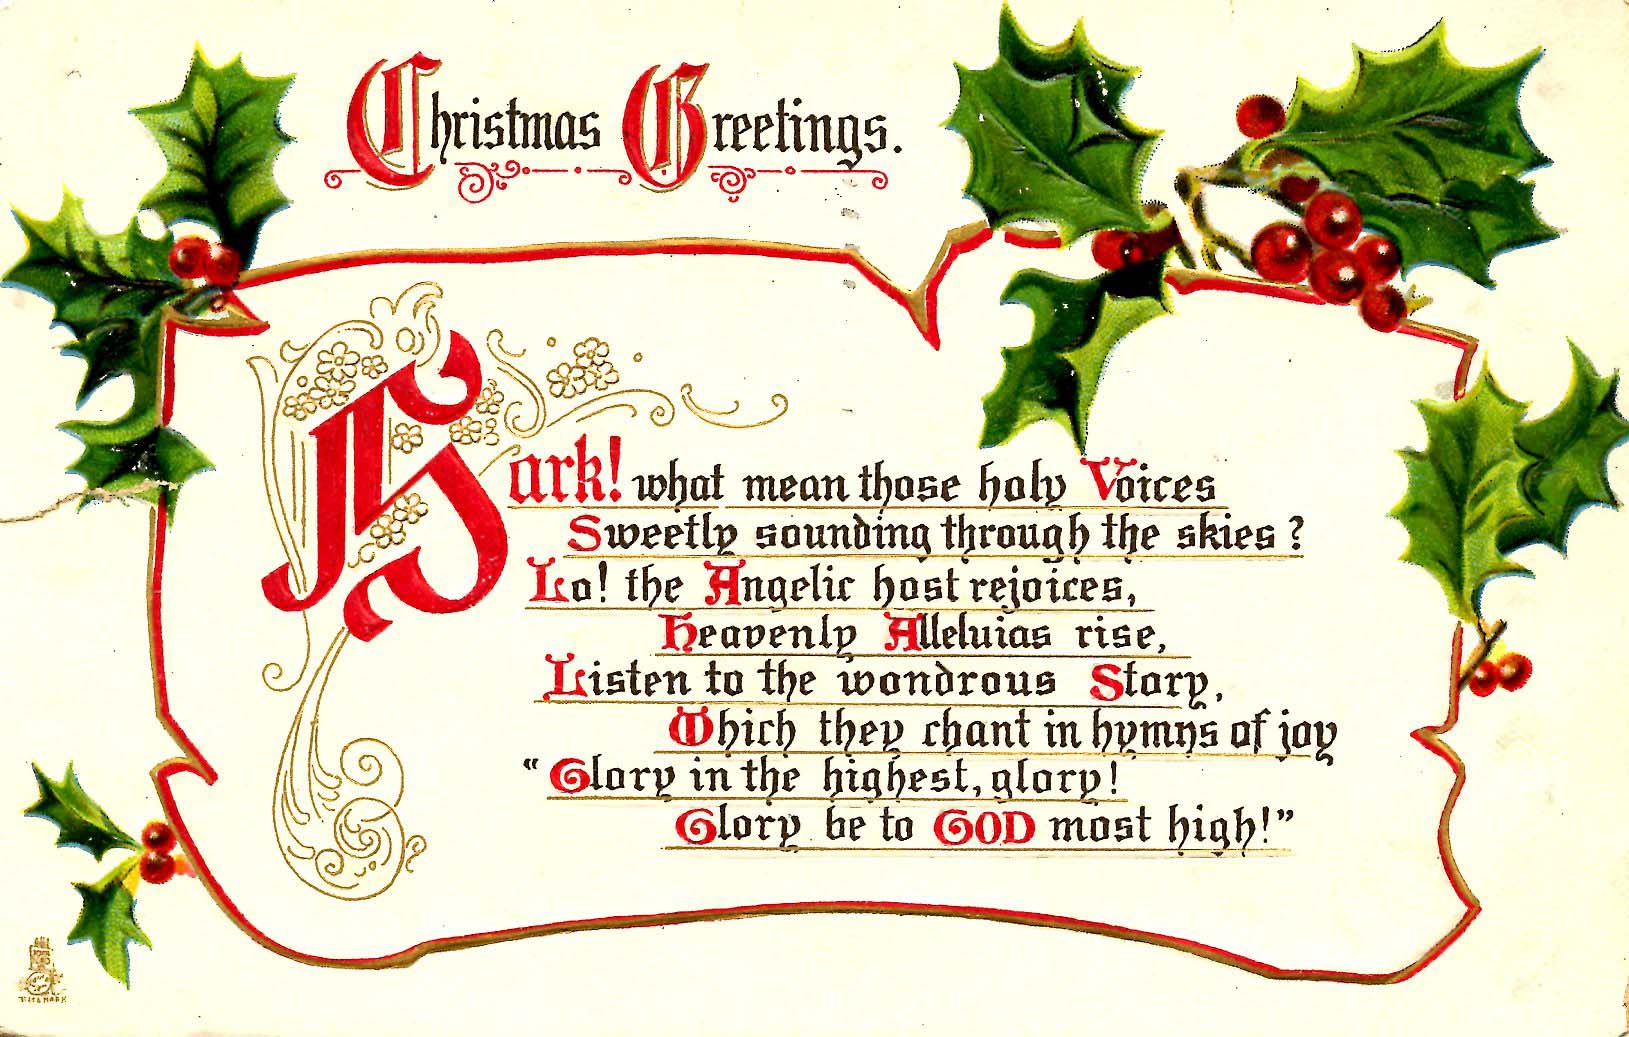 Christmas Greetings.
Hark! what mean those holy Voices
Sweetly sounding through the skies?
Lo! the Angelic host rejoices,
Heavenly Alleluias rise,
Listen to the wondrous Story,
Which they chant in hymns of joy
“Glory in the highest, glory!
Glory be to GOD most high!”
TRADE MARK